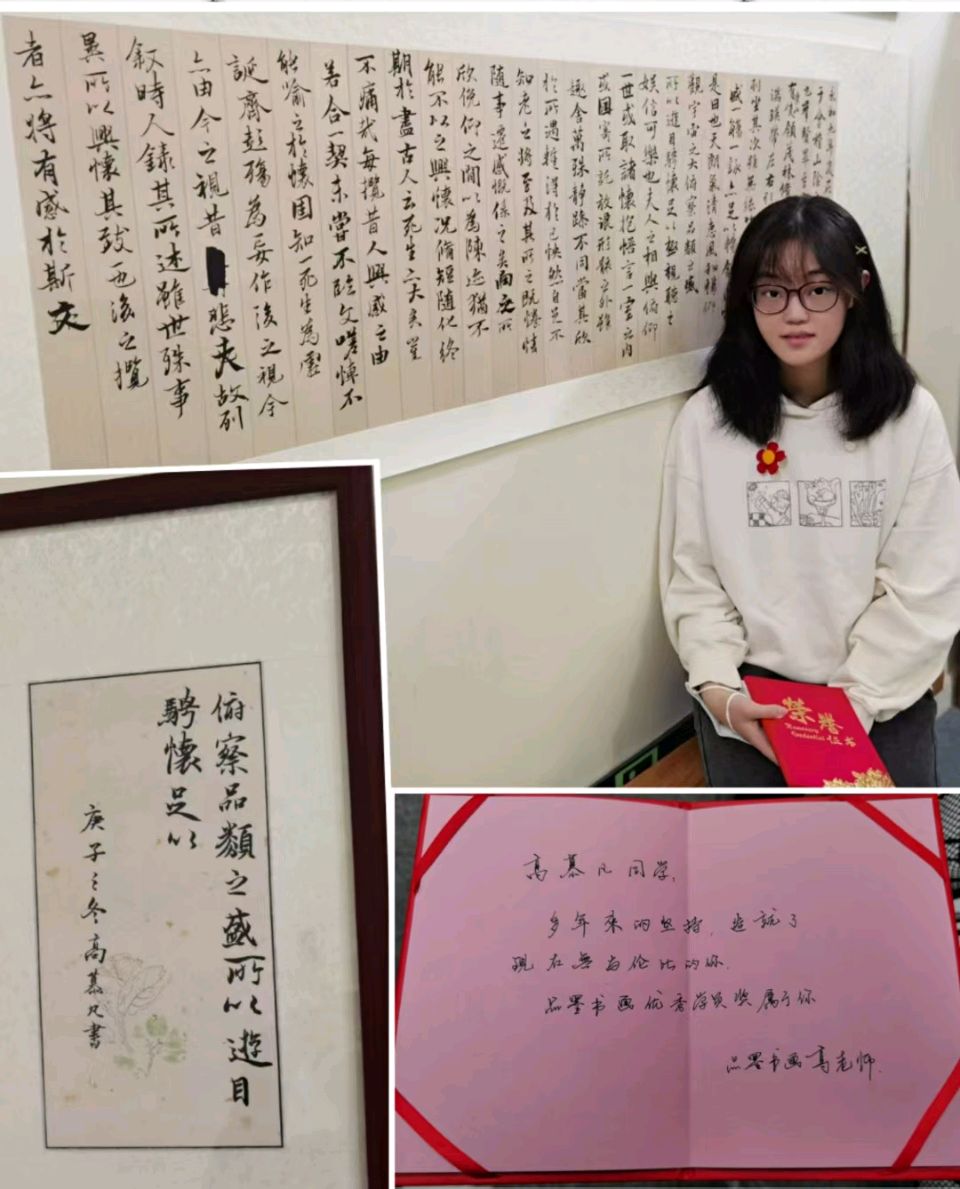 永和九年歲在
于會稽山陰
也羣賢畢至
有峻領茂林脩
湍暎帶左右引
列坐其次雖無絲
盛一觴一詠亦足以暢
是日也天朗氣清惠風和暢仰
觀宇宙之大俯察品類之盛
所以遊目騁懷足以極視聽之
娛信可樂也夫人之相與俯仰
一世或取諸懷抱悟言一室之內
或因寄所託放浪形骸之外雖
趣舍萬殊靜躁不同當其欣
於所遇蹔得於己怏然自足不
知老之將至及其所之既惓情
隨事遷感慨係之矣向之所
欣俛仰之閒以為陳迹猶不
能不以之興懷況脩短隨化終
期於盡古人云死生亦大矣豈
不痛哉每攬昔人興感之由
若合一契未嘗不臨文嗟悼不
能喻之於懷固知一死生為虛
誕齊彭殤為妄作後之視今
亦由今之視昔悲夫故列
敘時人錄其所述雖世殊事
異所以興懷其致也後之攬
者亦將有感於斯文
榮譽
Honorary
Credential
证书
俯察品類之盛所以遊目
騁懷足以
庚子之冬高慕凡書
高慕凡同学,
多年来的坚持,造就了
现在无与伦比的你.
品墨书画优秀学员奖属于你
品墨书画高老师.